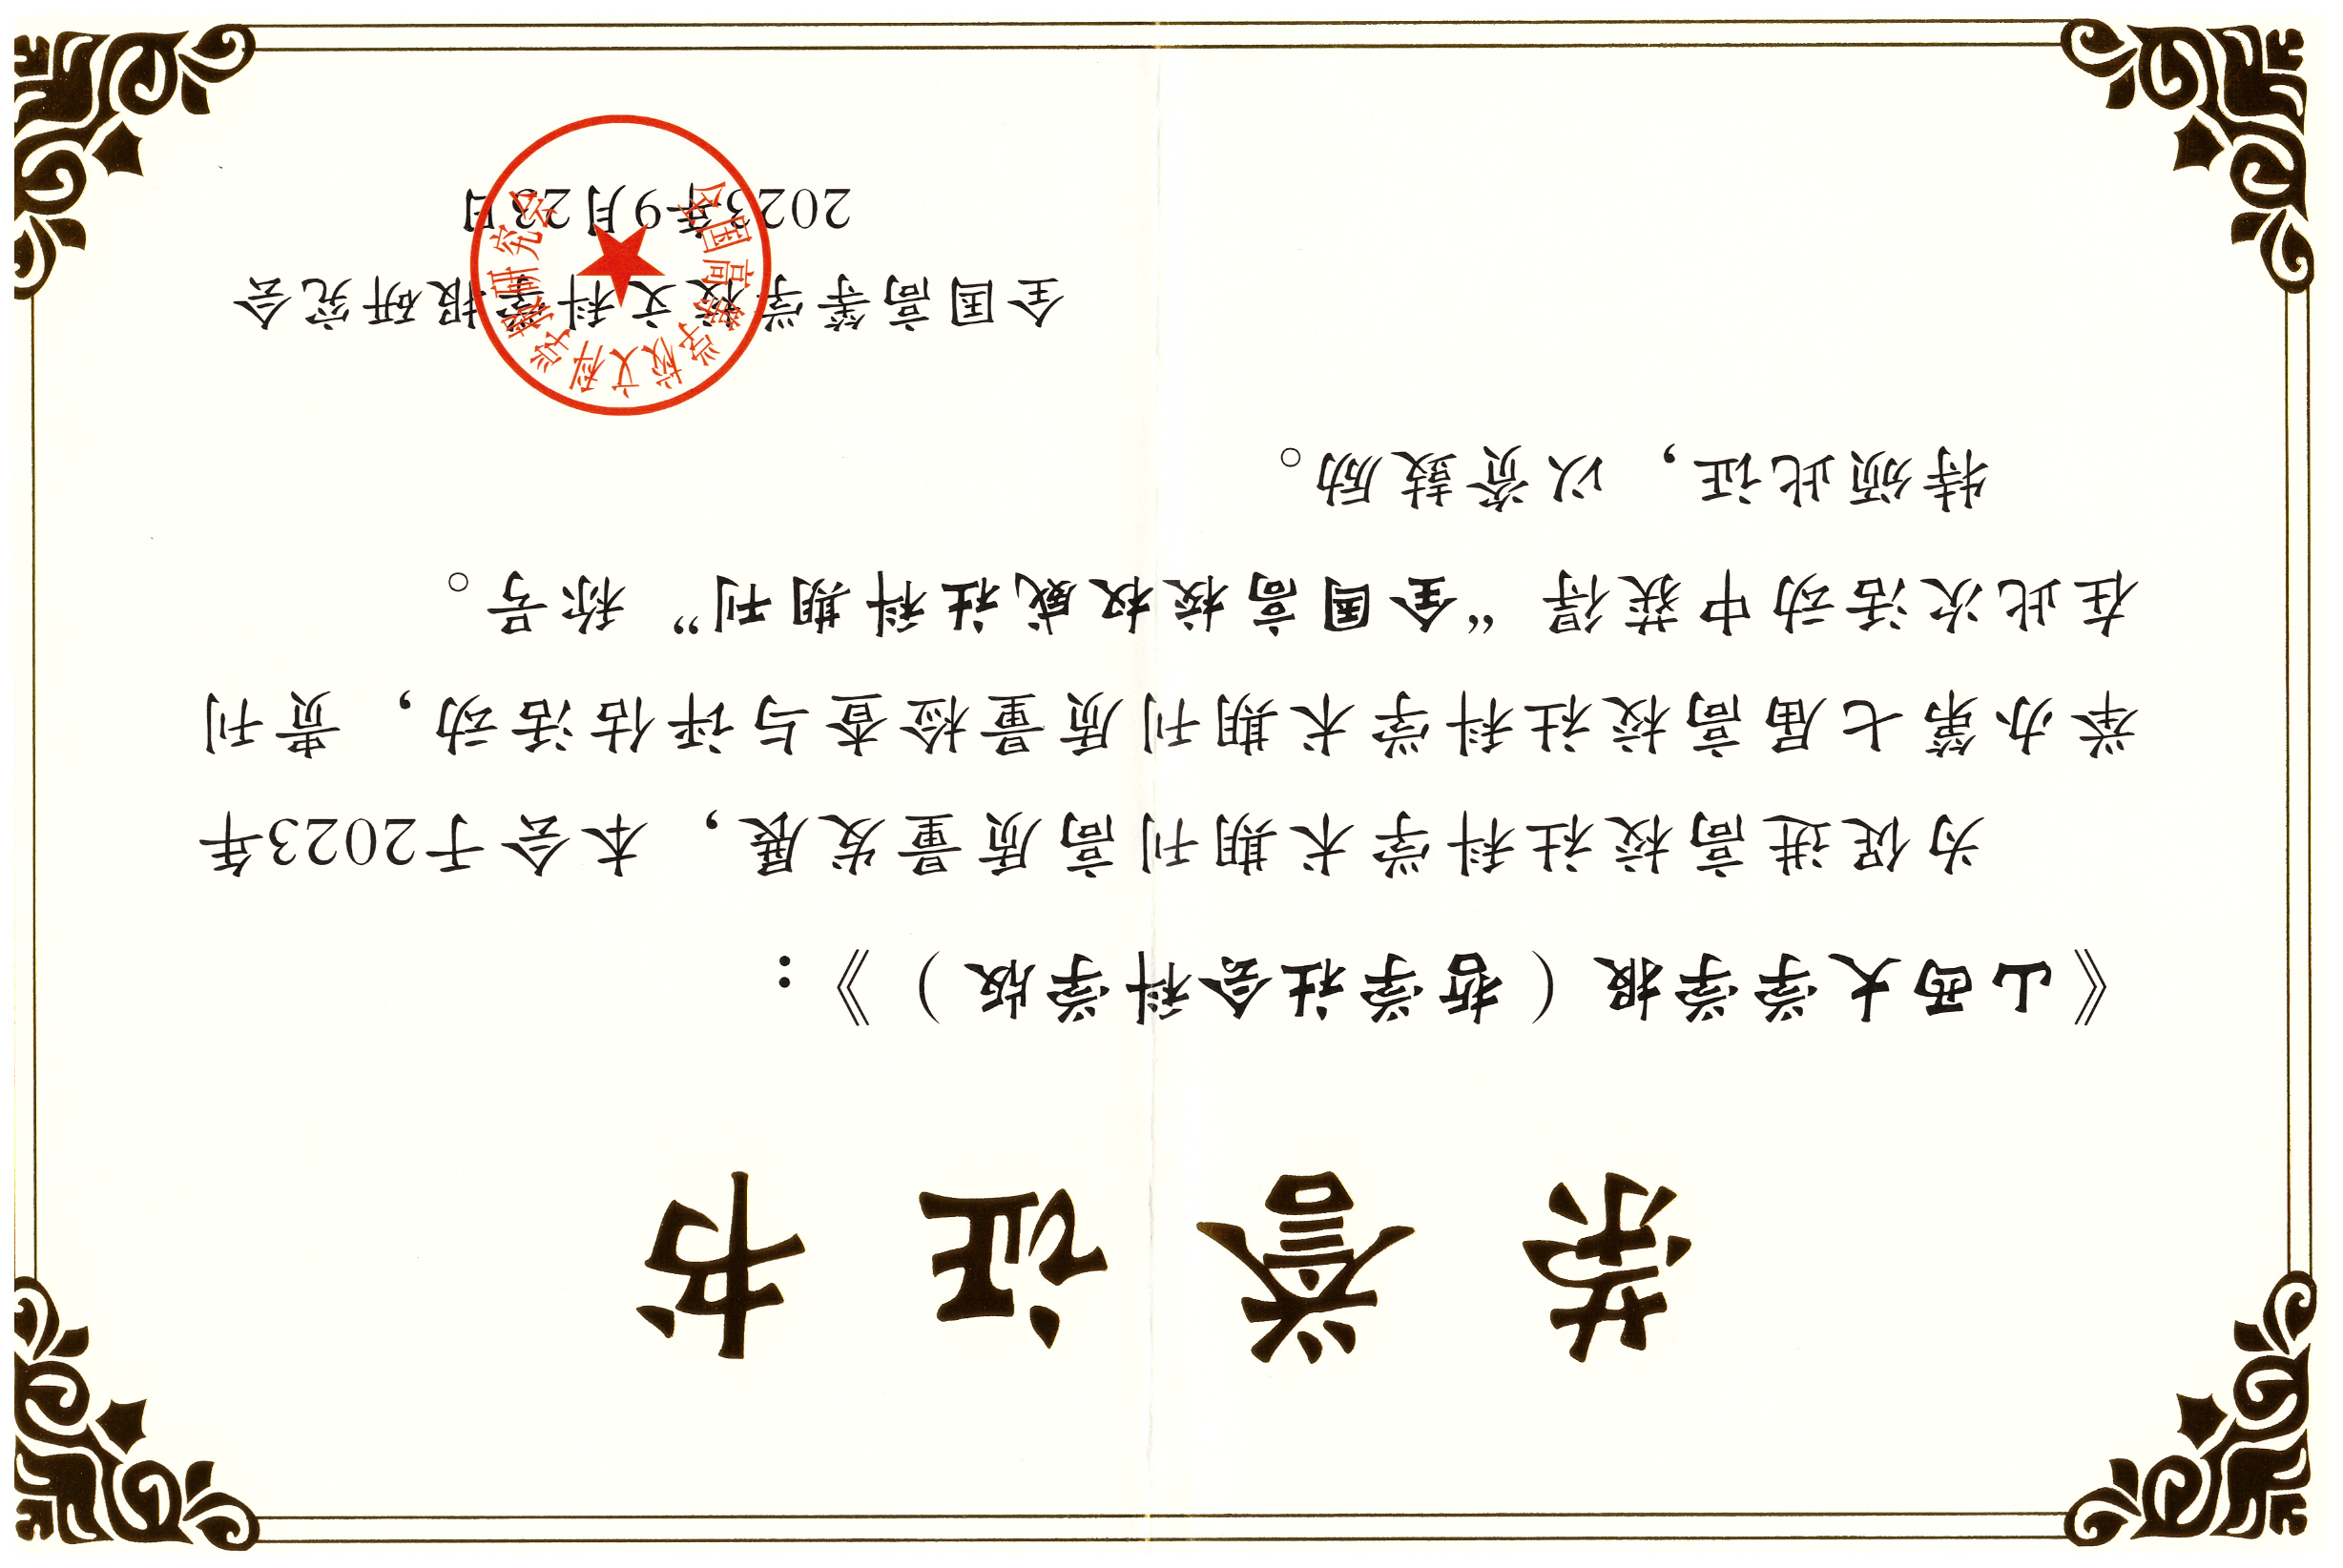 荣誉证书
《山西大学学报（哲学社会科学版）》：
为促进高校社科学术期刊高质量发展，本会于2023年
举办第七届高校社科学术期刊质量检查与评估活动，贵刊
在此次活动中获得“全国高校权威社科期刊”称号。
特颁此证，以资鼓励。
全国高等学校文科学报研究会
2023年9月23日
全国高等学校文科学学报研究会